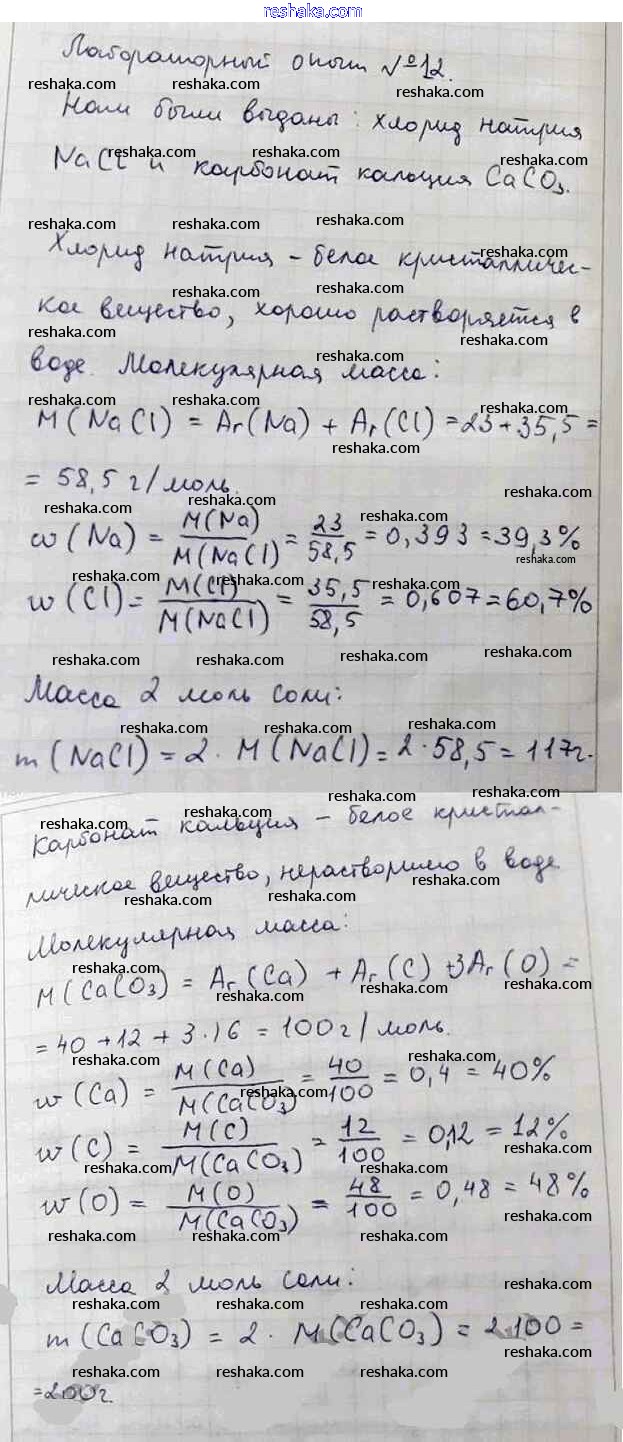 reshaka.com
Лабораторный опыт №12.
Нам были выданы: хлорид натрия
NaCl и карбонат кальция CaCO₃.
Хлорид натрия – белое кристалличес-
кое вещество, хорошо растворяется в
воде. Молекулярная масса:
M(NaCl) = Ar(Na) + Ar(Cl) = 23 + 35,5 =
= 58,5 г/моль.
w(Na) = M(Na)/M(NaCl) = 23/58,5 = 0,393 = 39,3%
w(Cl) = M(Cl)/M(NaCl) = 35,5/58,5 = 0,607 = 60,7%
Масса 2 моль соли:
m(NaCl) = 2 · M(NaCl) = 2 · 58,5 = 117г.
Карбонат кальция – белое кристал-
лическое вещество, нерастворимо в воде
Молекулярная масса:
M(CaCO₃) = Ar(Ca) + Ar(C) + 3Ar(O) =
= 40 + 12 + 3·16 = 100 г/моль.
w(Ca) = M(Ca)/M(CaCO₃) = 40/100 = 0,4 = 40%
w(C) = M(C)/M(CaCO₃) = 12/100 = 0,12 = 12%
w(O) = M(O)/M(CaCO₃) = 48/100 = 0,48 = 48%
Масса 2 моль соли:
m(CaCO₃) = 2 · M(CaCO₃) = 2·100 =
= 200г.